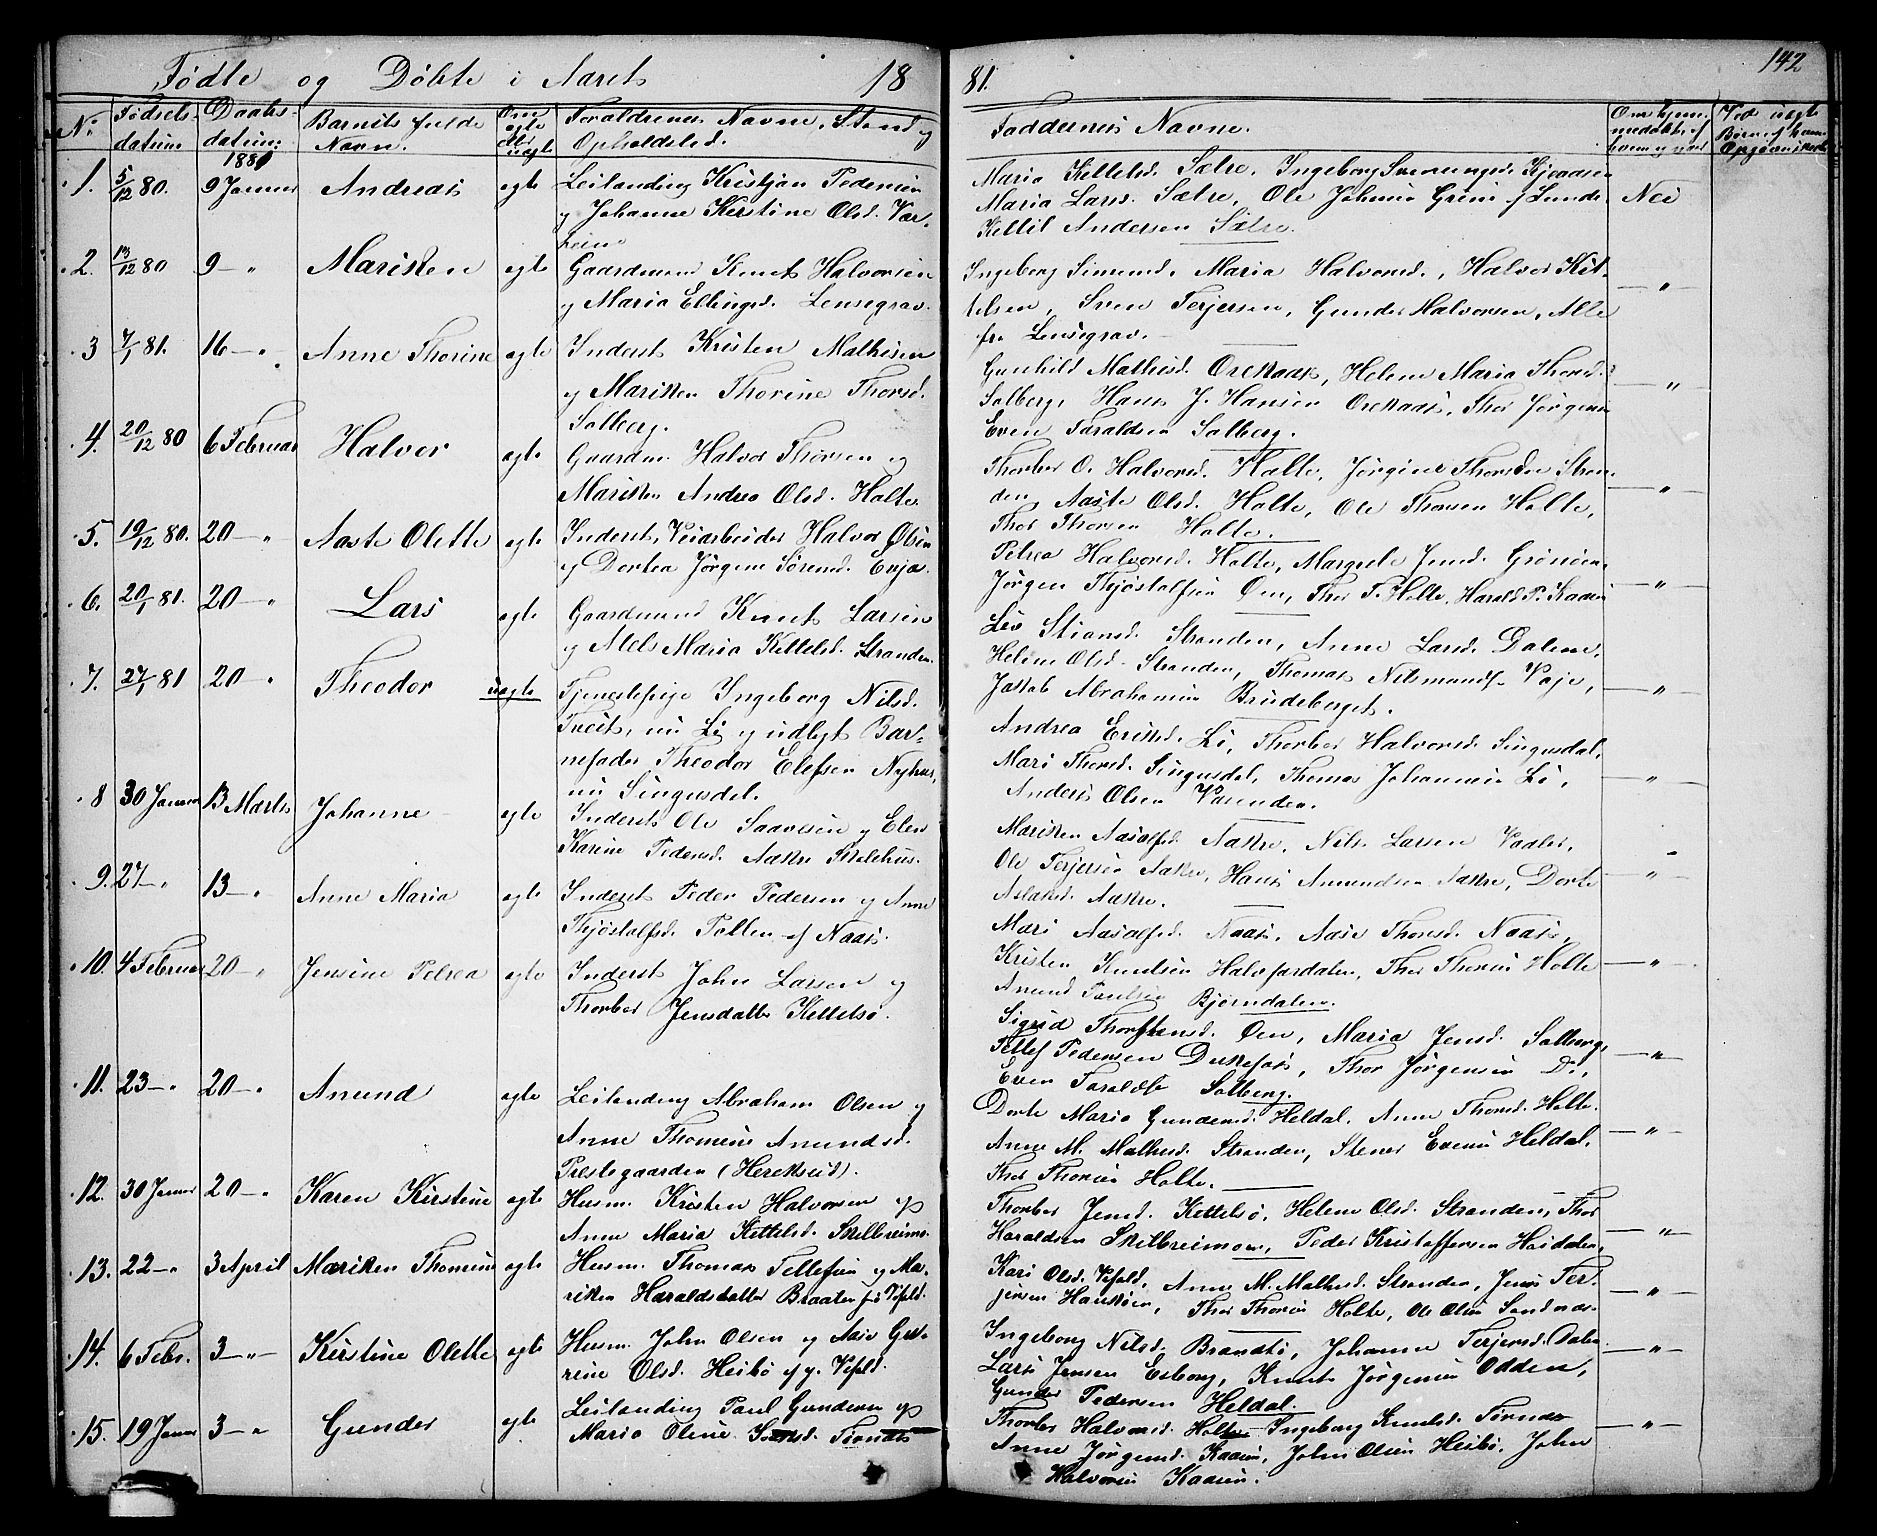 Fødte og Døbte i Aaret 1881. 142
No Fødsels- datum Daabs- datum: 1881 Barnets fulde Navn. Om egte eller uegte Forældrenes Navne, Stand og Opholdsted. Faddernes Navne. Om hjemmedøbt, af hvem og naar
1. 5/12 80. 9 Januar Andreas egte Leilending Kristjan Pedersen
y Johanne Kerstine Olsd. Var-
heim
Maria Kettelsd. Sætre, Ingeborg Sveinungsd. Kjeaasen
Maria Larsd. Sætre, Ole Johnsen Grini af Lunde Nei
Kettil Andersen Sætre.
2. 13/12 80 9 — " Marisken egte Gaardmand Knut Halvorsen
y Maria Ellingsd. Lensegrav.
Ingeborg Simonsd. Maria Halvorsd., Halvor Kit-
telsen, Sven Terjersen, Gunder Halvorsen, Alle — " —
fra Lensegrav.
3 7/1 81. 16 — " Anne Thorine egte Inderst Kristen Mathisen
y Marisken Thorine Thorsd.
Solberg.
Gunhild Mathisd. Orekaas, Helene Maria Thorsd.
Solberg, Hans J. Hansen Orekaas, Thor Jørgensen — " —
Even Taraldsen Solberg.
4. 20/12 80 6 Februar Halvor egte Gaardm. Halvor Thorsen y
Marisken Andrea Olsd. Holte.
Thorber O. Halvorsd. Holte, Jørgine Thorsdtr Stran-
den, Aaste Olsd. Holte, Ole Thorsen Holte, — " —
Thor Thorsen Holte.
5. 19/12 80. 20 — " Aaste Olette egte Inderst, Veiarbeider Halvor Olsen
y Dortea Jørgine Sørensd. Evja.
Petrea Halvorsd. Holte, Margrete Jensd. Grönöen,
Jørgen Thjøstolfsen Öen, Thor T. Holte, Harald P. Kaasen — " —
6. 20/1 81. 20 — " Lars egte Gaardmand Knut Larsen
y Alels Maria Kettelsd. Stranden.
Liv Stiansd. Stranden, Anne Larsd. Dalene,
Helene Olsd. Stranden, Thomas Nilsmand. Vaje, — " —
Jakob Abrahamsen Brudeberget.
7. 27/1 81 20 — " Theodor uegte Tjenestepige Ingeborg Nilsd.
Tveit, nu Li y udlagt Bar-
nefader Theodor Elefsen Nyhus,
nu Singusdal.
Andrea Eriksd. Li, Thorber Halvorsd. Singusdal,
Mari Thorsd. Singusdal, Thomas Johannesen Li, — " —
Anders Olsen Varenden.
8 30 Januar 13 Marts Johanne egte Inderst Ole Saavesen y Elen
Karine Pedersd. Aaske Skolehus.
Marisken Aasolfsd. Aaske, Nils Larsen Vaaler,
Ole Terjersen Aaske, Hans Amundsen Aaske, Dorte — " —
Aslaksd. Aaske.
9. 27 — " 13 — " Anne Maria egte Inderst Peder Pedersen y Anne
Thjøstolfsd. Pollen af Naas.
Mari Aasolfsd. Naas, Aase Thorsd. Naas,
Kristen Knudsen Halvfardalen, Thor Thorsen Holte — " —
Anund Paulsen Bjørndalen.
10. 4 Februar 20 — " Jensine Petrea egte Inderst John Larsen y
Thorber Jensdatter Kettelsø.
Sigrid Thorstensd. Öen, Maria Jensd. Solberg,
Tellef Pedersen Duskefos, Thor Jørgensen Do, — " —
Even Taraldsen Solberg.
11. 23 — " 20 — " Anund egte Leilending Abraham Olsen y
Anne Thomine Anundsd.
Prestegaarden (Herekseid).
Dorte Maria Gundersd. Heldal, Anne Thorsd. Holte.
Anne M. Mathisd. Stranden, Stener Evensen Heldal, — " —
Thor Thorsen Holte.
12. 30 Januar 20 — " Karen Kirstine egte Husm. Kristen Halvorsen y
Anne Maria Kettelsd. Skilbreimo.
Thorber Jensd. Kettelsø, Helene Olsd. Stranden, Thor
Haraldsen Skilbreimoen, Peder Kristoffersen Heidalen, — " —
13. 22 — " 3 April Marisken Thomine egte Husm. Thomas Tellefsen y Ma-
risken Haraldsdatter Braaten fra Vefald.
Kari Olsd. Vefald, Anne M. Mathisd. Stranden, Jens Ter-
jersen Hauskøen, Thor Thorsen Holte, Ole Olsen Sandnæs. — " —
14. 6 Febr. 3 — " — Kirstine Olette egte Husm. John Olsen y Aase Gu-
rine Olsd. Heibø af y. Vefald.
Ingeborg Nilsd. Brandsø, Johanne Terjersd. Dalen — " —
Lars Jensen Esborg, Knut Jørgensen Odden,
Gunder Pedersen Heldal.
15. 19 Januar 3 — " Gunder egte Leilending Paul Gundersen y
Maria Oline Tornæs
Thorber Halvorsd. Holte Ingeborg Knutsd. Tornæs — " —
Anne Jørgensd. Kaasen, John Olsen Heibø, John
Halvorsen Kaasen.